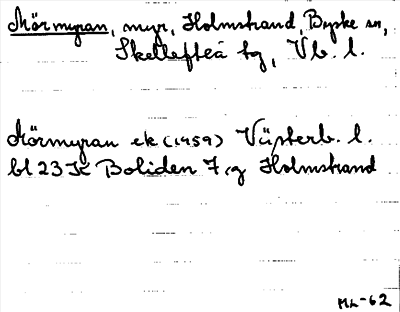 Mörmyran, myr, Holmstrand, Byske sn,
Skellefteå tg, Vb. l.
Mörmyran ek (1959) Västerb. l.
bl 23 K Boliden 7,g Holmstrand
ML-62